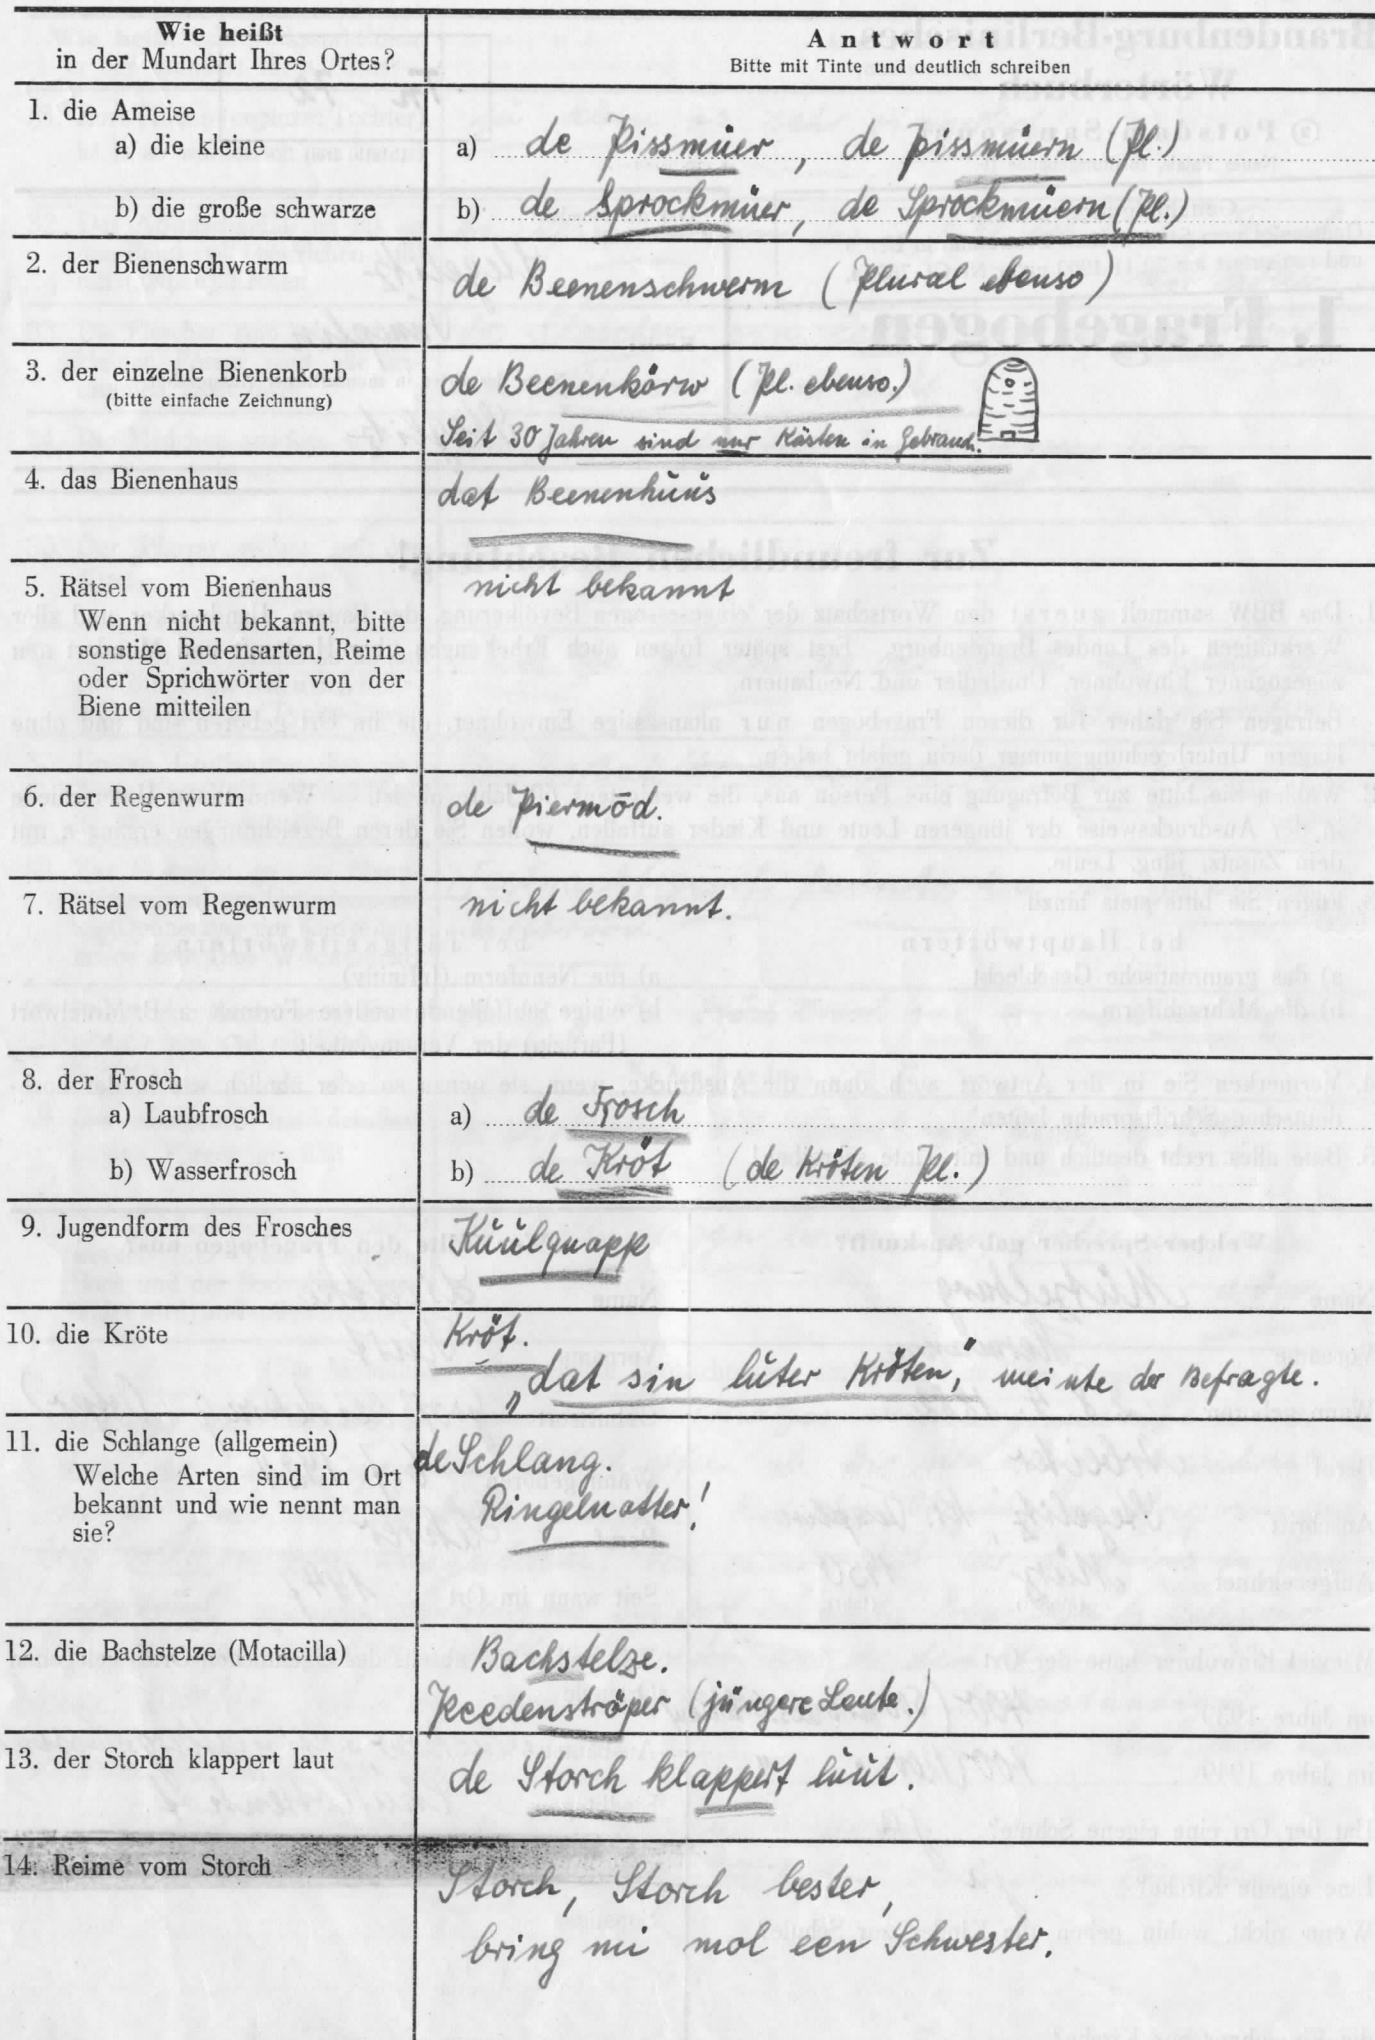 Wie heißt
in der Mundart Ihres Ortes?
Antwort
Bitte mit Tinte und deutlich schreiben
1. die Ameise
a) die kleine
a) de Pissmüer, de Pissmüern (Pl.)
b) die große schwarze
b) de Sprockmüer, de Sprockmüern (Pl.)
2. der Bienenschwarm
de Beenenschwerm (Plural ebenso)
3. der einzelne Bienenkorb
(bitte einfache Zeichnung)
de Beenenkörw (Pl. ebenso.)
Seit 30 Jahren sind nur Kästen in Gebrauch.
4. das Bienenhaus
dat Beenenhuus
5. Rätsel vom Bienenhaus
Wenn nicht bekannt, bitte
sonstige Redensarten, Reime
oder Sprichwörter von der
Biene mitteilen
nicht bekannt
6. der Regenwurm
de Piermōd.
7. Rätsel vom Regenwurm
nicht bekannt.
8. der Frosch
a) Laubfrosch
a) de Frosch
b) Wasserfrosch
b) de Kröt (de Kröten Pl.)
9. Jugendform des Frosches
Kuulquapp
10. die Kröte
Kröt.
„dat sin luter Kröten," meinte der Befragte.
11. die Schlange (allgemein)
Welche Arten sind im Ort
bekannt und wie nennt man
sie?
de Schlang.
Ringelnatter!
12. die Bachstelze (Motacilla)
Bachstelze.
Peedensträper (jüngere Leute.)
13. der Storch klappert laut
de Storch klappert luut.
14. Reime vom Storch
Storch, Storch bester,
bring mi mol een Schwester.